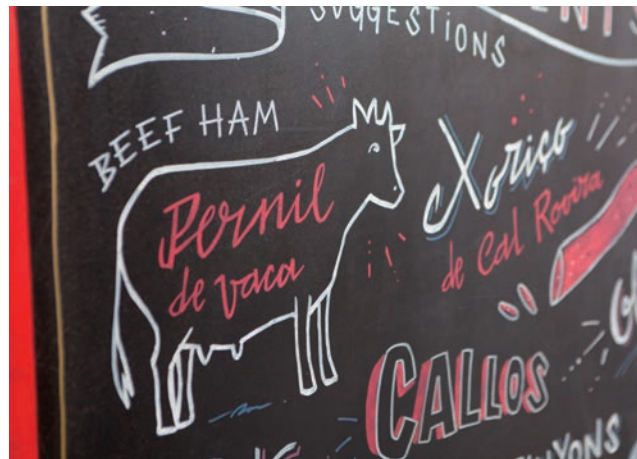 SUGGESTIONS
BEEF HAM
Pernil
de vaca
Xoriço
de Cal Rovira
CALLOS